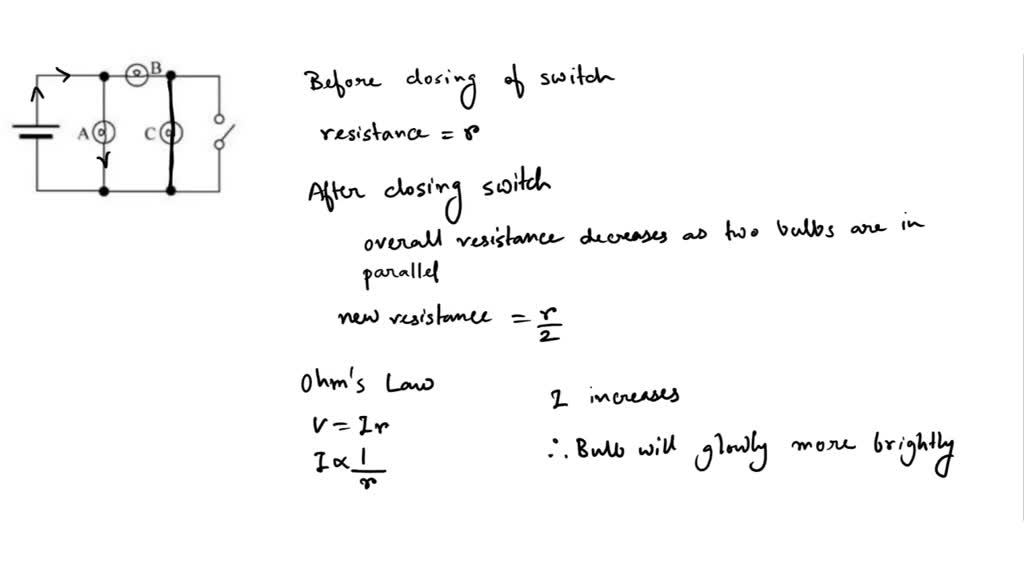 B
A
C
Before closing of switch
resistance = r
After closing switch
overall resistance decreases as two bulbs are in
parallel
new resistance = r/2
Ohm's Law
V = Ir
I ∝ 1/r
I increases
∴ Bulb will glowly more brightly